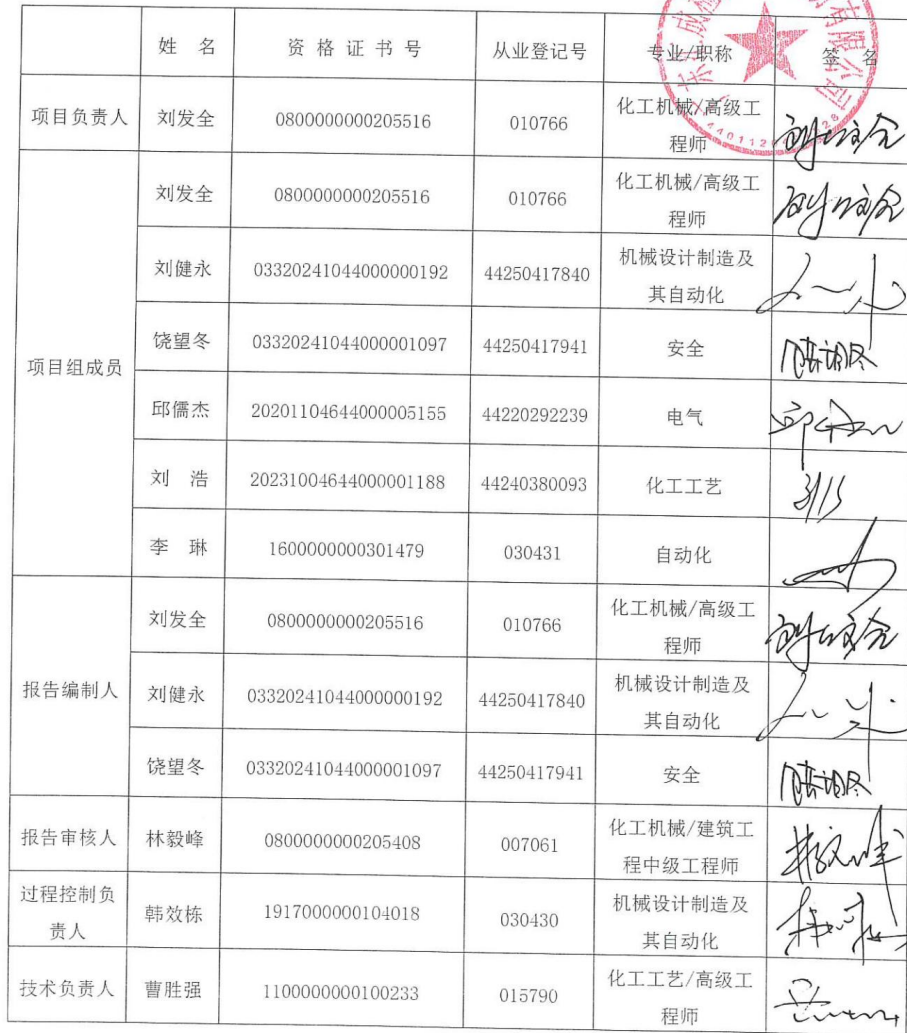 姓 名 资 格 证 书 号 从业登记号 专业/职称 签 名
项目负责人 刘发全 0800000000205516 010766 化工机械/高级工
程师
项目组成员 刘发全 0800000000205516 010766 化工机械/高级工
程师
刘健永 03320241044000000192 44250417840 机械设计制造及
其自动化
饶望冬 03320241044000001097 44250417941 安全
邱儒杰 20201104644000005155 44220292239 电气
刘 浩 20231004644000001188 44240380093 化工工艺
李 琳 1600000000301479 030431 自动化
报告编制人 刘发全 0800000000205516 010766 化工机械/高级工
程师
刘健永 03320241044000000192 44250417840 机械设计制造及
其自动化
饶望冬 03320241044000001097 44250417941 安全
报告审核人 林毅峰 0800000000205408 007061 化工机械/建筑工
程中级工程师
过程控制负
责人 韩效栋 1917000000104018 030430 机械设计制造及
其自动化
技术负责人 曹胜强 1100000000100233 015790 化工工艺/高级工
程师
有限公司